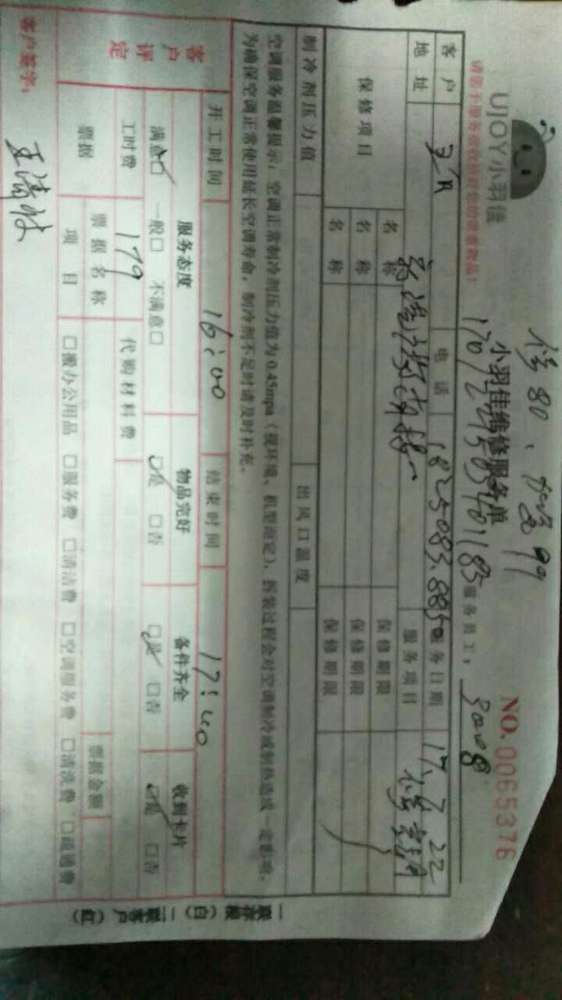 修80、加氟99
UJOY小羽佳
请您于服务前收好您的贵重物品!
小羽佳维修服务单
NO. 0065376
服务员工: 3008
客户
电话
服务日期 17.7.22
地址
服务项目
保修项目
名称
保修期限
名称
保修期限
名称
保修期限
制冷剂压力值
出风口温度
空调服务温馨提示:空调正常制冷剂压力值为0.45mpa(视环境、机型而定)、拆装过程会对空调制冷或制热造成一定影响。
为确保空调正常使用延长空调寿命,制冷剂不足时请及时补充。
开工时间 16:00 结束时间 17:40
客户评定
服务态度 物品完好 备件齐全 收到卡片
满意□ 一般□ 不满意□ □是 □否 □是 □否 □是 □否
工时费 179 代购材料费
票据
票据名称
票据金额
项目 □搬办公用品 □服务费 □清洁费 □空调服务费 □清洗费 □疏通费
客户签字:
一联存根(白) 二联客户(红)